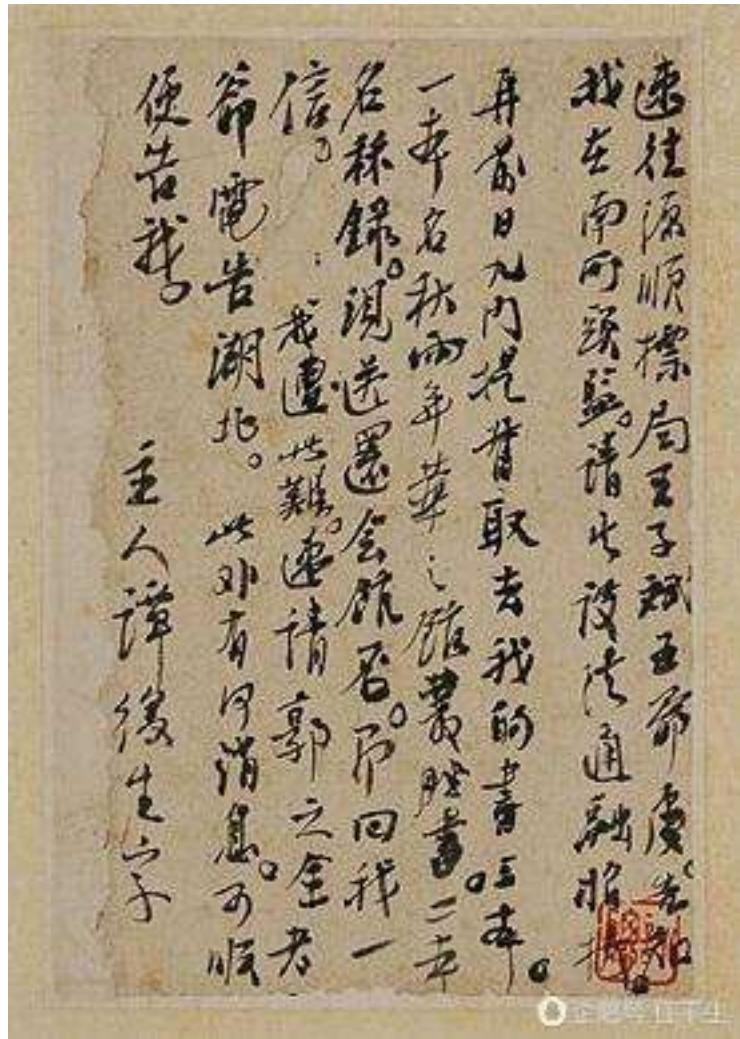 速往源順標局王子斌五爺處。告知
我在南所頭監。請其設法通融
再前日九門提督取去我的書三本。
一本名秋雨年華之館叢脞書。二本
名稱錄。現送還会館否。即回我一
信。我遭此難。速請郭之全老
爺電告湖北。此外有何消息。可順
便告我。
主人譚復生字